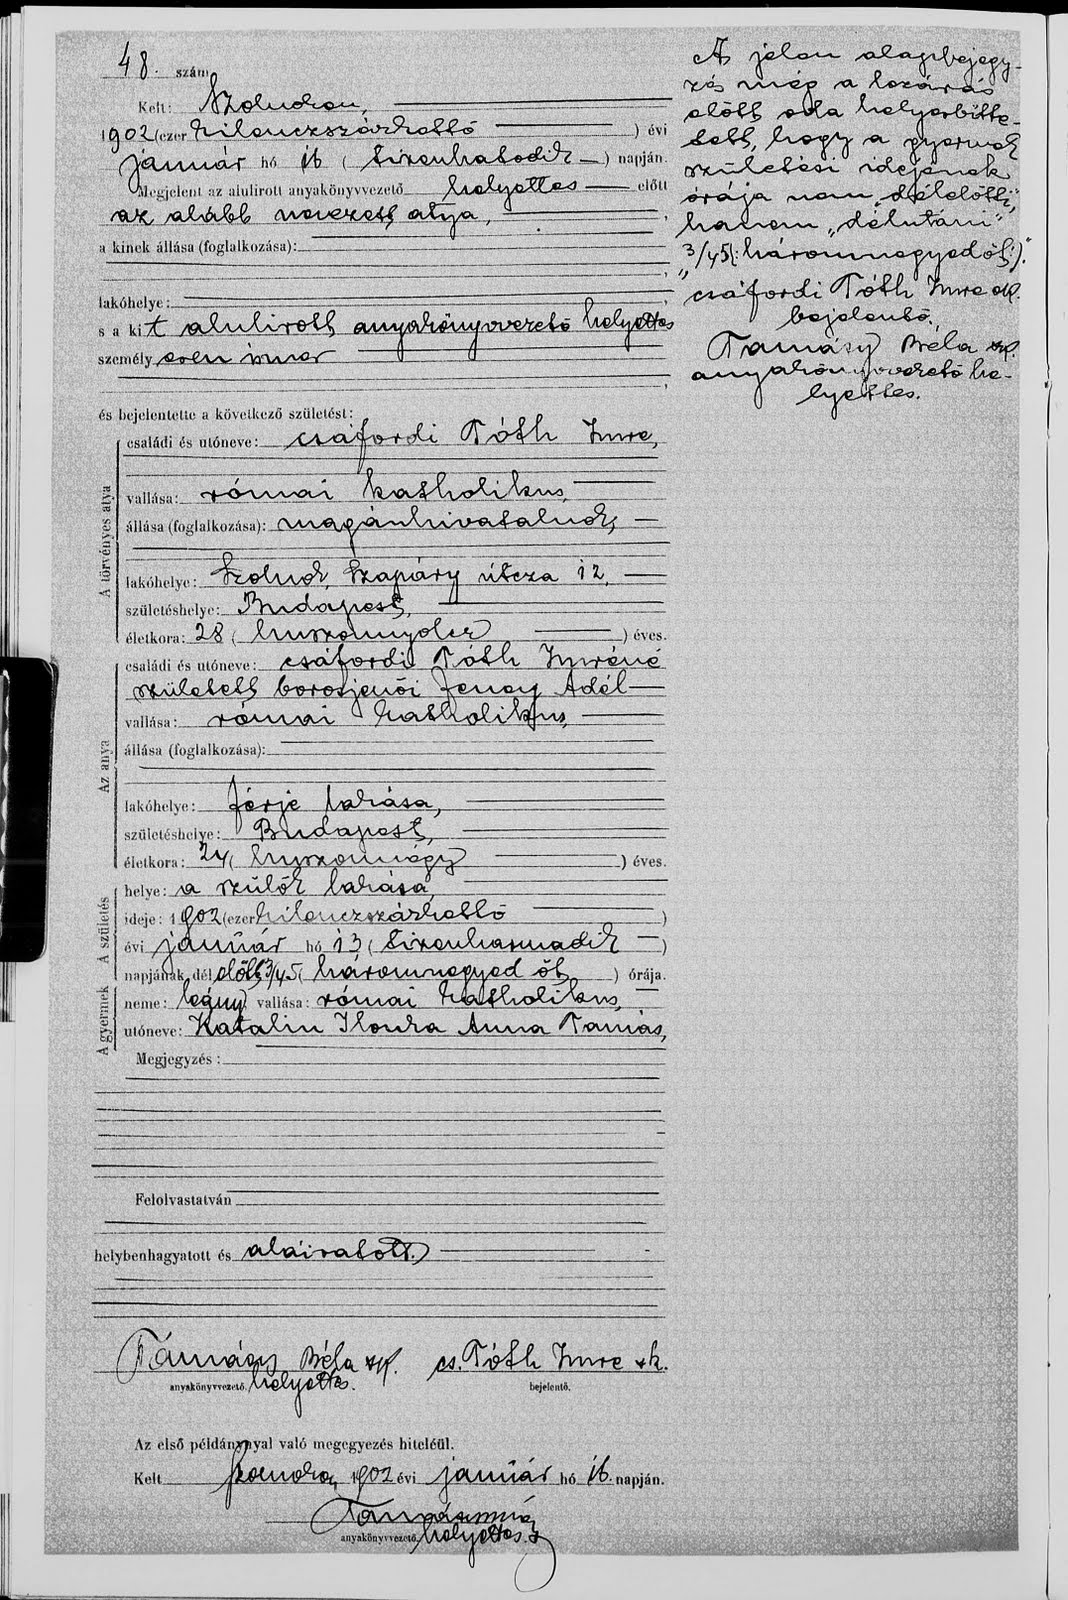 48. szám
Kelt: Szolnokon,
1902 (ezer kilenczszázkettő ) évi
január hó 16 ( tizenhatodik ) napján.
Megjelent az alulirott anyakönyvvezető helyettes előtt
az alább nevezett atya,
a kinek állása (foglalkozása):
lakóhelye:
s a kit alulirott anyakönyvvezető helyettes
személyesen ismer
és bejelentette a következő születést:
A törvényes atya
családi és utóneve: csáfordi Tóth Imre,
vallása: római katholikus,
állása (foglalkozása): magánhivatalnok,
lakóhelye: Szolnok, Szapáry útcza 12,
születéshelye: Budapest,
életkora: 28 ( huszonnyolcz ) éves.
Az anya
családi és utóneve: csáfordi Tóth Imréné
született borosjenői Jeney Adél
vallása: római katholikus,
állása (foglalkozása):
lakóhelye: férje lakása,
születéshelye: Budapest,
életkora: 24 ( huszonnégy ) éves.
A születés
helye: a szülők lakása,
ideje: 1902 (ezer kilenczszázkettő )
évi január hó 13 ( tizenharmadik )
napjának dél előtt 3/45 ( háromnegyed öt ) órája.
A gyermek
neme: leány, vallása: római katholikus,
utóneve: Katalin Ilona Anna Tamás,
Megjegyzés:
Felolvastatván
helybenhagyatott és aláiratott.
Tamásy Béla sk. cs. Tóth Imre sk.
anyakönyvvezető. helyettes. bejelentő.
Az első példánynyal való megegyezés hiteléül.
Kelt Szolnokon, 1902 évi január hó 16. napján.
anyakönyvvezető. helyettes.
A jelen alapbejegy-
zés még a lezárás
előtt oda helyesbítte-
tett, hogy a gyermek
születési idejének
órája nem „délelőtti”,
hanem „délutáni”
„3/45 (: háromnegyed öt :).”
csáfordi Tóth Imre sk.
bejelentő.
Tamásy Béla sk.
anyakönyvvezető he-
lyettes.